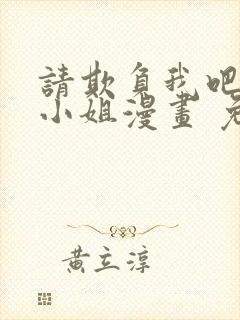 請欺負我吧
小姐漫畫 免
黃立淳